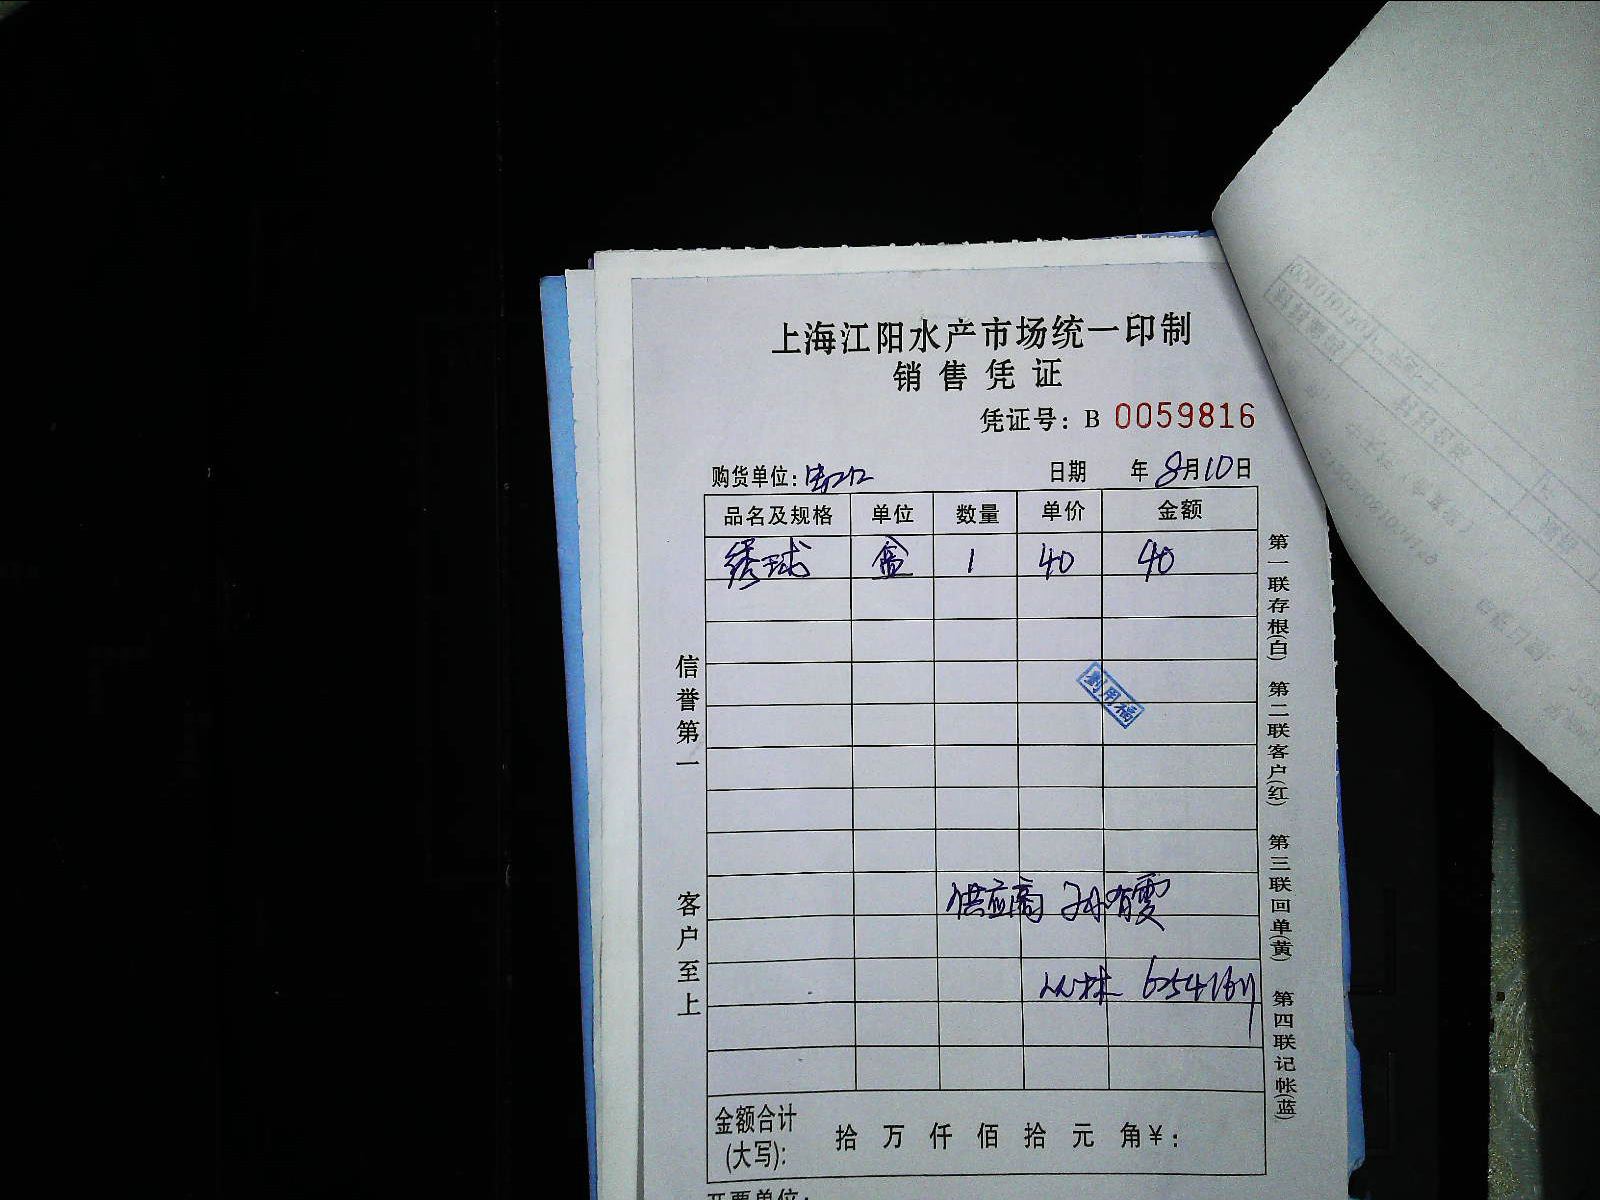 上海江阳水产市场统一印制
销售凭证
凭证号：B 0059816
购货单位： 日期 年8月10日
品名及规格 单位 数量 单价 金额
绣球 盒 1 40 40
劉用福
供应商 孙有雯
林
信誉第一
客户至上
第一联存根(白) 第二联客户(红) 第三联回单(黄) 第四联记帐(蓝)
金额合计 拾 万 仟 佰 拾 元 角￥：
(大写)：
开票单位：